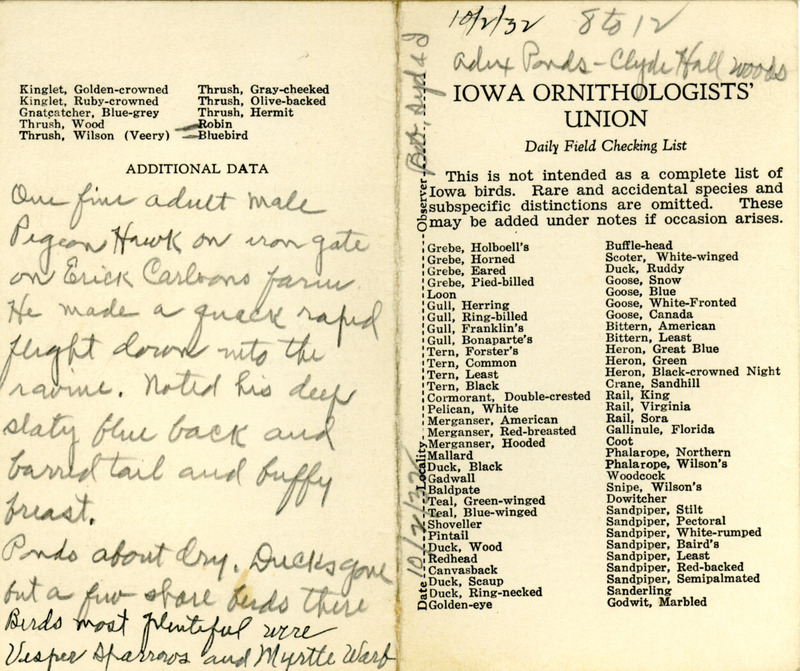 Kinglet, Golden-crowned
Kinglet, Ruby-crowned
Gnatcatcher, Blue-grey
Thrush, Wood
Thrush, Wilson (Veery)
Thrush, Gray-cheeked
Thrush, Olive-backed
Thrush, Hermit
Robin
Bluebird
ADDITIONAL DATA
One fine adult male
Pigeon Hawk on iron gate
on Erick Carlsons farm.
He made a quick rapid
flight down into the
ravine. Noted his deep
slaty blue back and
barred tail and buffy
breast.
Ponds about dry. Ducks gone
but a few shore birds there
Birds most plentiful were
Vesper Sparrows and Myrtle Warb
10/2/32 8 to 12
Ponds - Clyde Hall woods
IOWA ORNITHOLOGISTS'
UNION
Daily Field Checking List
This is not intended as a complete list of
Iowa birds. Rare and accidental species and
subspecific distinctions are omitted. These
may be added under notes if occasion arises.
Date 10/2/32 Locality Observer
Grebe, Holboell's
Grebe, Horned
Grebe, Eared
Grebe, Pied-billed
Loon
Gull, Herring
Gull, Ring-billed
Gull, Franklin's
Gull, Bonaparte's
Tern, Forster's
Tern, Common
Tern, Least
Tern, Black
Cormorant, Double-crested
Pelican, White
Merganser, American
Merganser, Red-breasted
Merganser, Hooded
Mallard
Duck, Black
Gadwall
Baldpate
Teal, Green-winged
Teal, Blue-winged
Shoveller
Pintail
Duck, Wood
Redhead
Canvasback
Duck, Scaup
Duck, Ring-necked
Golden-eye
Buffle-head
Scoter, White-winged
Duck, Ruddy
Goose, Snow
Goose, Blue
Goose, White-Fronted
Goose, Canada
Bittern, American
Bittern, Least
Heron, Great Blue
Heron, Green
Heron, Black-crowned Night
Crane, Sandhill
Rail, King
Rail, Virginia
Rail, Sora
Gallinule, Florida
Coot
Phalarope, Northern
Phalarope, Wilson's
Woodcock
Snipe, Wilson's
Dowitcher
Sandpiper, Stilt
Sandpiper, Pectoral
Sandpiper, White-rumped
Sandpiper, Baird's
Sandpiper, Least
Sandpiper, Red-backed
Sandpiper, Semipalmated
Sanderling
Godwit, Marbled